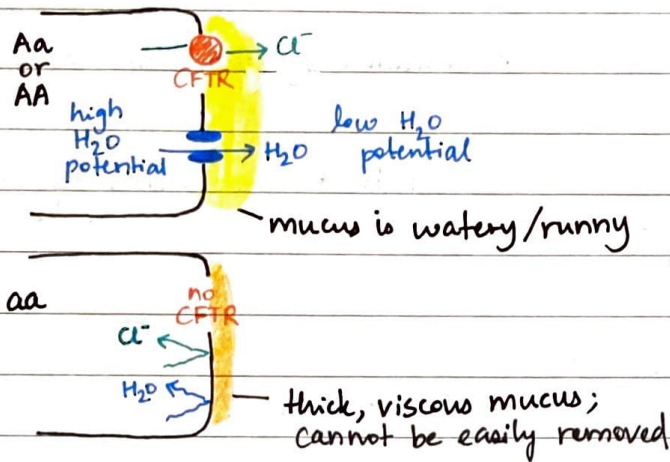 Aa
or
AA
Cl⁻
CFTR
high
H₂O
potential
H₂O
low H₂O
potential
mucus is watery/runny
aa
no
CFTR
Cl⁻
H₂O
thick, viscous mucus;
cannot be easily removed